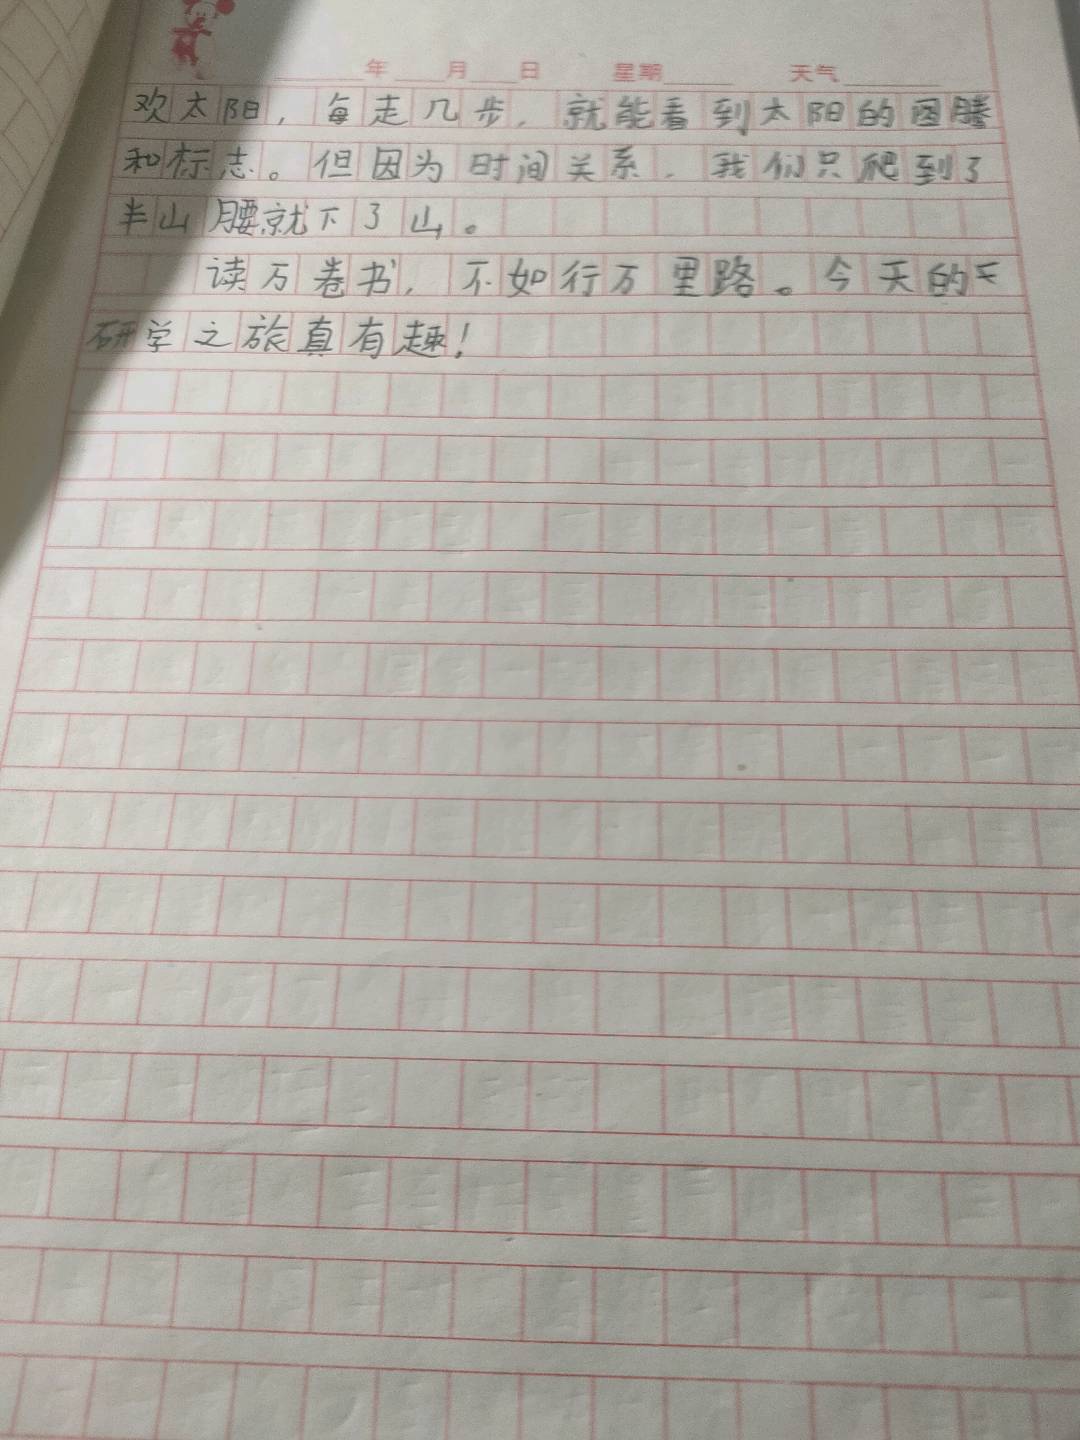 年 月 日 星期 天气
欢太阳，每走几步，就能看到太阳的图腾
和标志。但因为时间关系，我们只爬到了
半山腰就下了山。
读万卷书，不如行万里路。今天的
研学之旅真有趣！